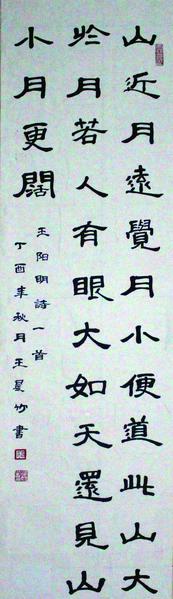 山近月遠覺月小便道此山大
於月若人有眼大如天還見山
小月更闊
王阳明詩一首
丁酉年秋月王星竹書